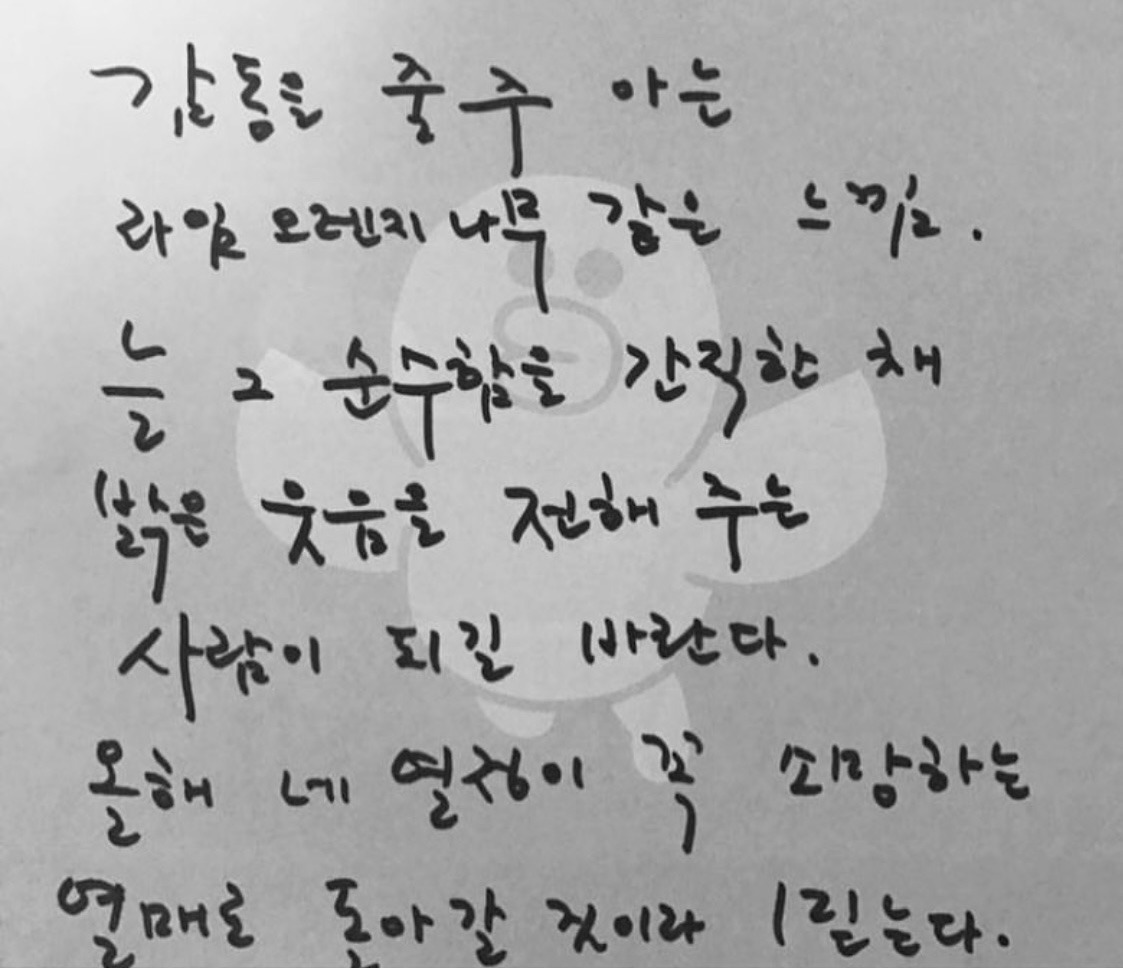 감동을 줄 주 아는
라임 오렌지 나무 같은 느낌.
늘 그 순수함을 간직한 채
밝은 웃음을 전해 주는
사람이 되길 바란다.
올해 네 열정이 꼭 소망하는
열매로 돌아갈 것이라 믿는다.